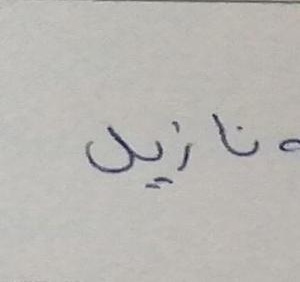 نازیل